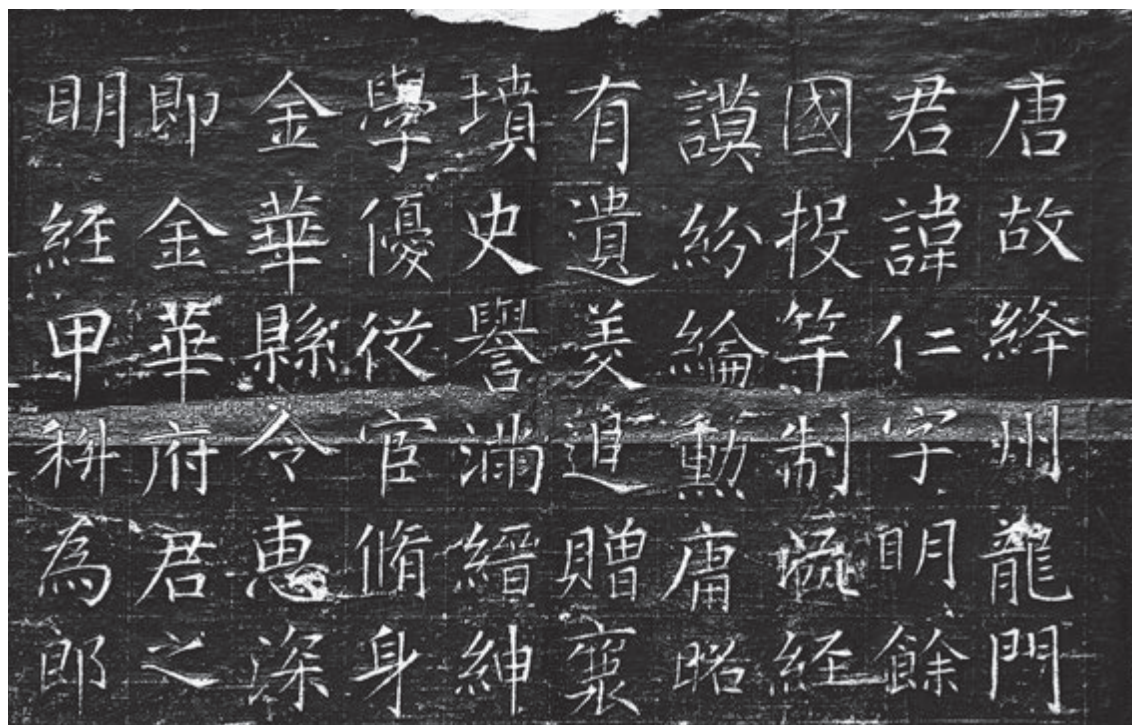 唐故絳州龍門
君諱仁字明餘
國投竿制流經
謨紛綸勳庸昭
有遺美追贈襃
墳史譽滿縉紳
學優從宦脩身
金華縣令惠深
即金華府君之
明經甲科為郎